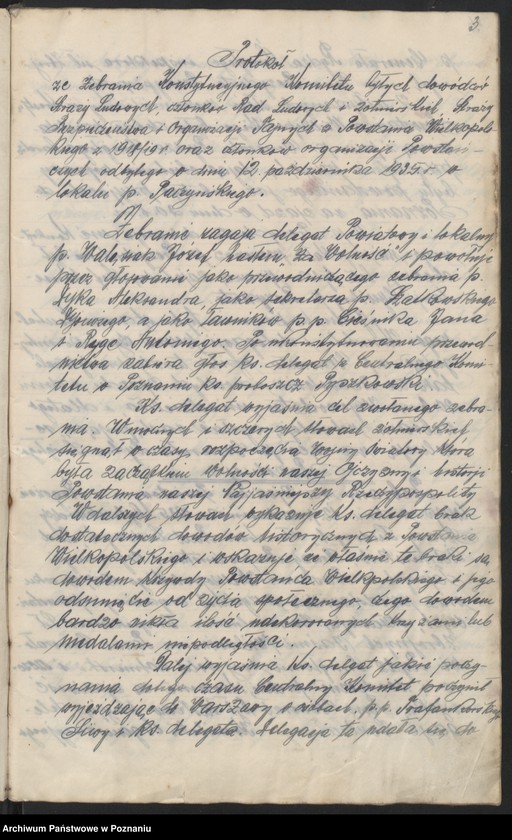 3.
Protokół
ze Zebrania Konstytucyjnego Komitetu byłych dowódców
Straży Ludowych, członków Rad Ludowych i żołnierskich, Straży
Bezpieczeństwa i Organizacji Tajnych z Powstania Wielkopols-
kiego z 1918/19 r. oraz członków organizacji Powstań-
czych odbytego w dniu 12. października 1935 r. w
lokalu p. Paczyńskiego.
1)
Zebranie zagaja delegat Powiatowy i lokalny
p. Walczak Józef hasłem Za Wolność i powołuje
przez głosowanie jako przewodniczącego zebrania p.
Łyka Aleksandra, jako sekretarza p.
a jako ławników p. p. Jana
i Antoniego. Po ukonstytuowaniu przewod-
nictwa zabiera głos ks. delegat p. Centralnego Komi-
tetu w Poznaniu ks. proboszcz Pyszkowski.
Ks. delegat wyjaśnia cel zwołanego zebra-
nia. W mocnych i szczerych słowach żołnierskich
sięgnął w czasy, rozpoczęcia wojny światowej która
była zaczątkiem wolności naszej Ojczyzny i historji
Powstania naszej Najjaśniejszej Rzeczypospolitej
W dalszych słowach wykazuje ks. delegat brak
dostatecznych dowodów historycznych z Powstania
Wielkopolskiego i wskazuje że właśnie te braki są
dowodem krzywdy Powstańca Wielkopolskiego i jego
odsunięcie od życia społecznego, czego dowodem
bardzo nikła ilość udekorowanych krzyżami lub
medalami niepodległości.
Dalej wyjaśnia ks. delegat jakie
długo czasu Centralny Komitet poczynił
wyjeżdżając do Warszawy w osobach p. p.
i ks. delegata. Delegacja ta udała się do
Archiwum Państwowe w Poznaniu